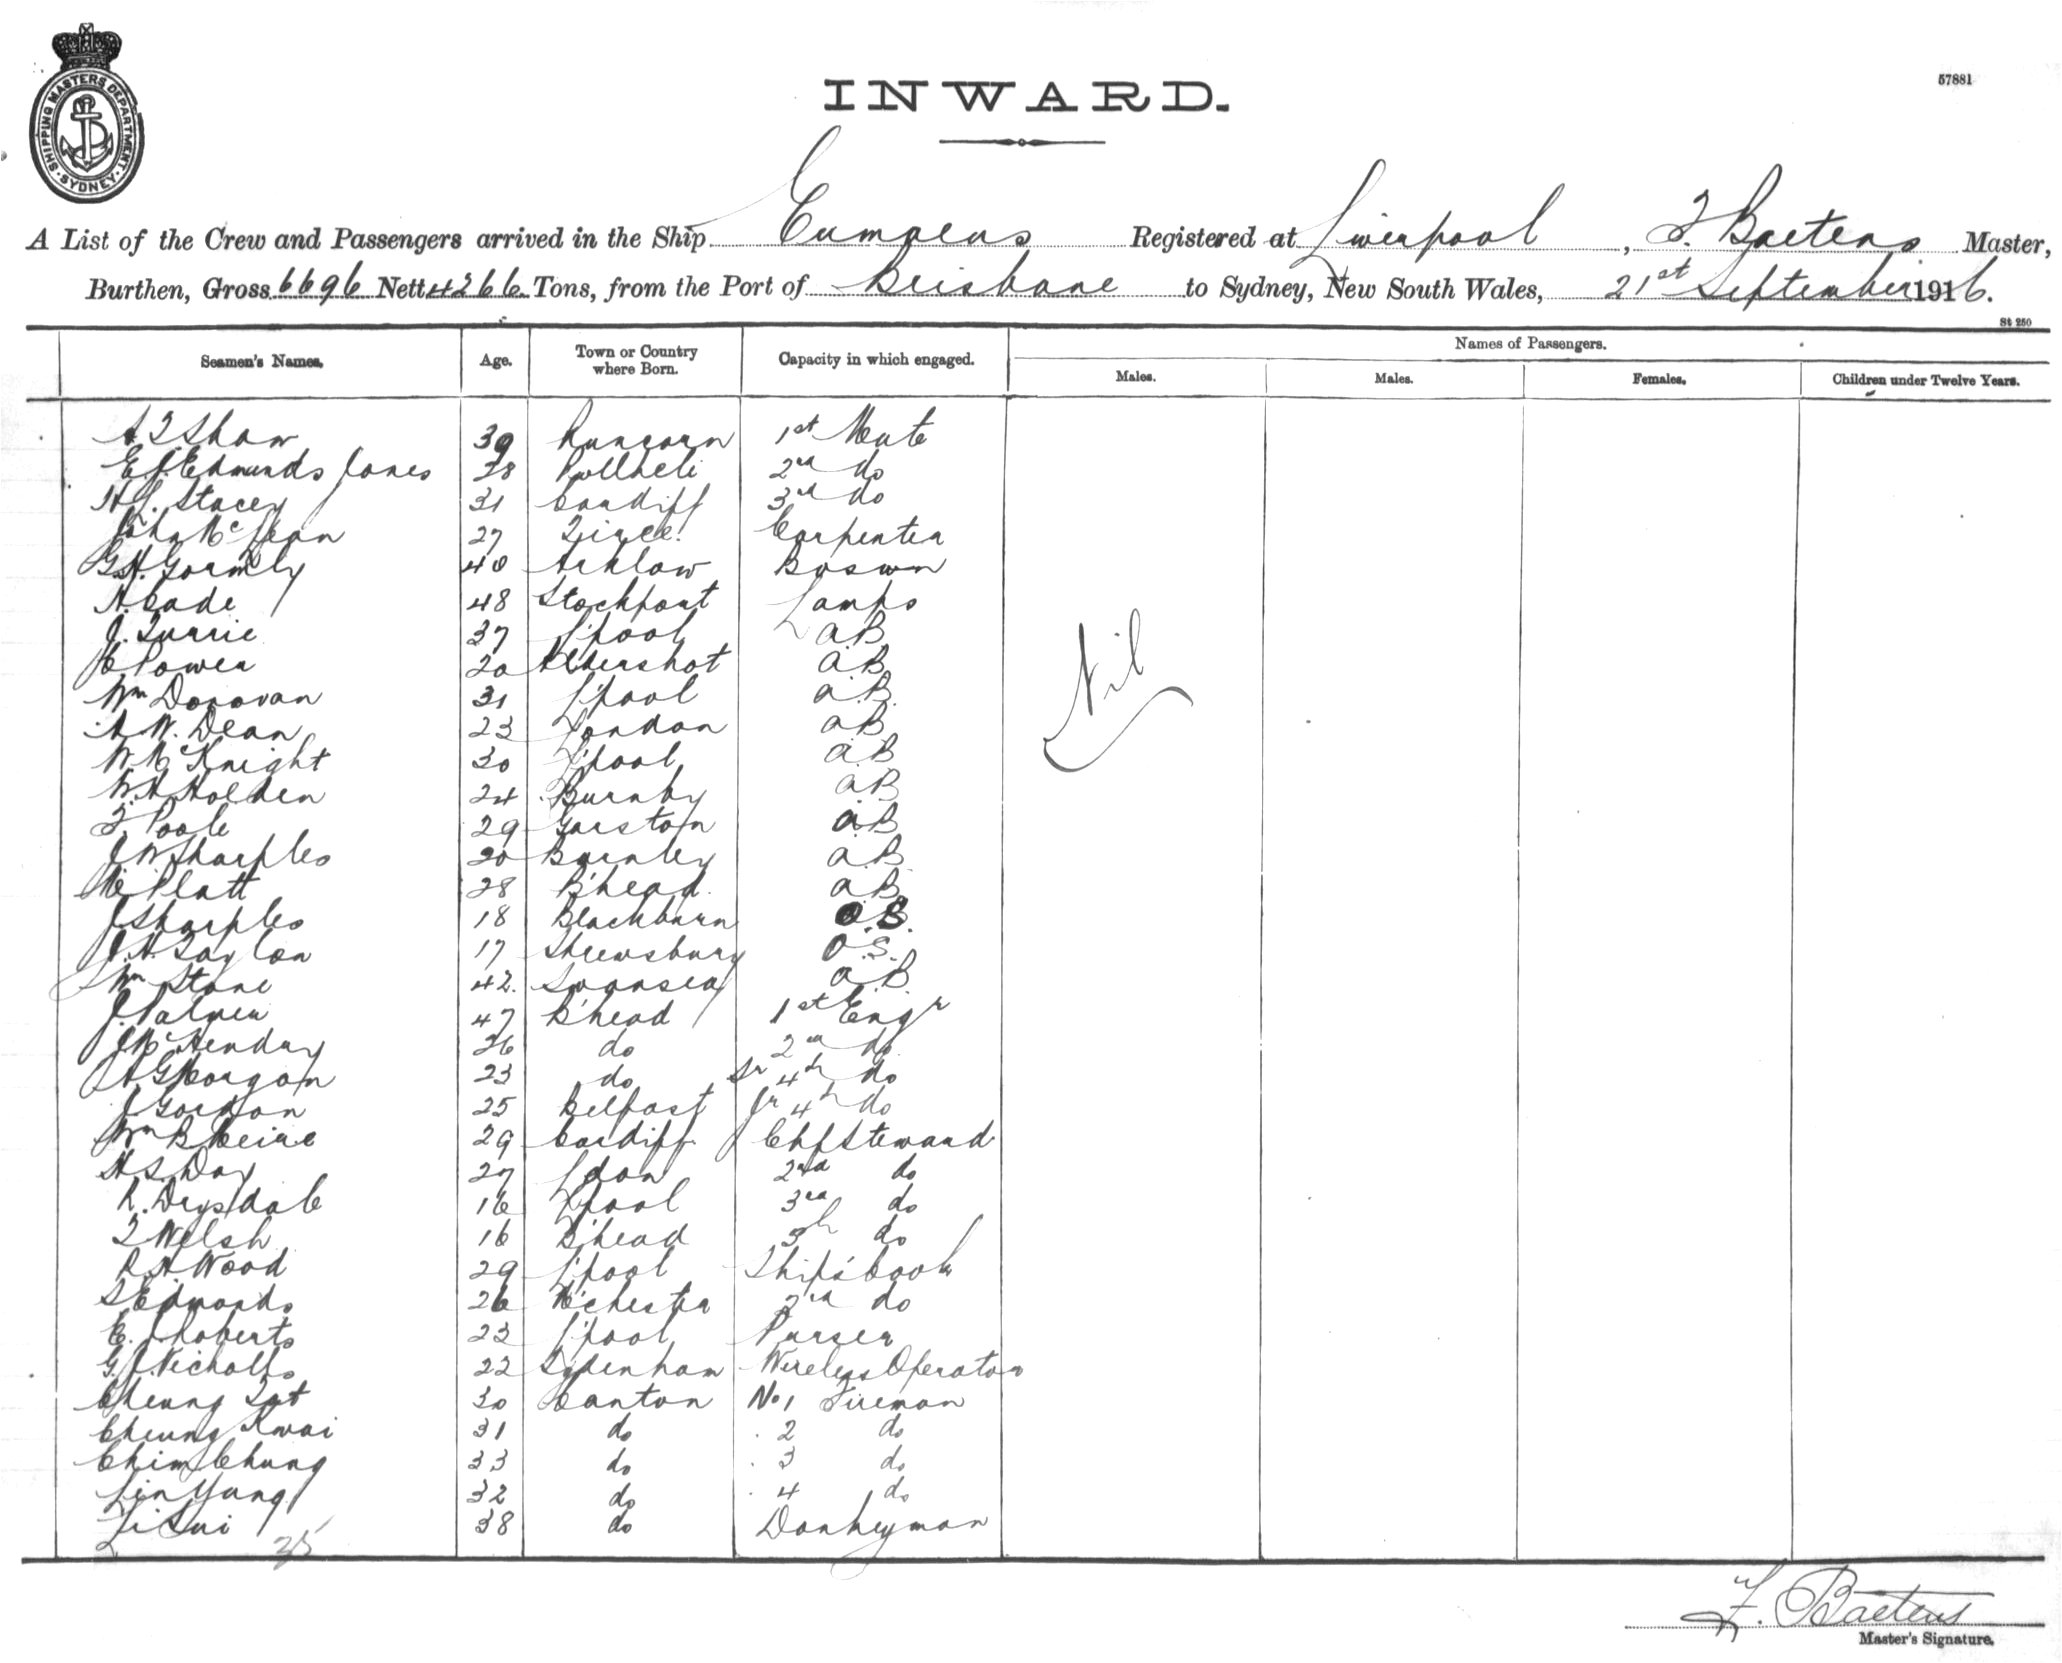 SHIPPING MASTERS DEPARTMENT. SYDNEY.
57881
INWARD.
A List of the Crew and Passengers arrived in the Ship Eumaeus Registered at Liverpool, F. Baetens Master,
Burthen, Gross 6696 Nett 4266 Tons, from the Port of Brisbane to Sydney, New South Wales, 21st September 1916.
St 250
Seamen's Names. Age. Town or Country where Born. Capacity in which engaged. Names of Passengers.
Males. Males. Females. Children under Twelve Years.
A F Shaw 39 Runcorn 1st Mate
E J. Edmunds Jones 28 Pwllheli 2nd do
H L. Stacey 31 Cardiff 3rd do
John McLean 27 Tiree. Carpenter
G.H. Gormly 40 Arklow Boswn
H. Cade 48 Stockport Lamps
J. Currie 37 L'pool AB
C Power 20 Aldershot AB
Wm Donovan 31 L'pool AB
A W. Dean 23 London AB
W. McKnight 30 L'pool AB
W.H Holden 24 Burnby AB
F. Poole 29 Garston AB
J W Sharples 20 Burnley AB
Platt 28 B'head. AB
J Sharples 18 Blackburn O.S.
J.H. Taylor 17 Shrewsbury O.S.
Wm Stone 42. Swansea A.B.
J. Palmer 47 B'head 1st Engr
J McHendry 26 do 2nd do
A G Morgan 23 do Sr 4th do
J Gordon 25 Belfast Jr 4th do
Wm B 29 Cardiff. Chf Steward
H S. Day 27 Ldon 2nd do
R. Drysdale 16 L'pool 3rd do
T Welsh 16 B'head do
R H Wood 29 L'pool Ship's Cook
S Edmonds 26 M'chester 2nd do
E. J Roberts 23 L'pool Purser
G. J. Nicholls 22 Sydenham Wireless Operator
Cheung Tat 30 Canton No 1 Fireman
Cheung Kwai 31 do 2 do
Chim Chung 33 do 3 do
Lin Yung 32 do 4 do
Li Sui 38 do Donkeyman
35
Nil
F. Baetens
Master's Signature.